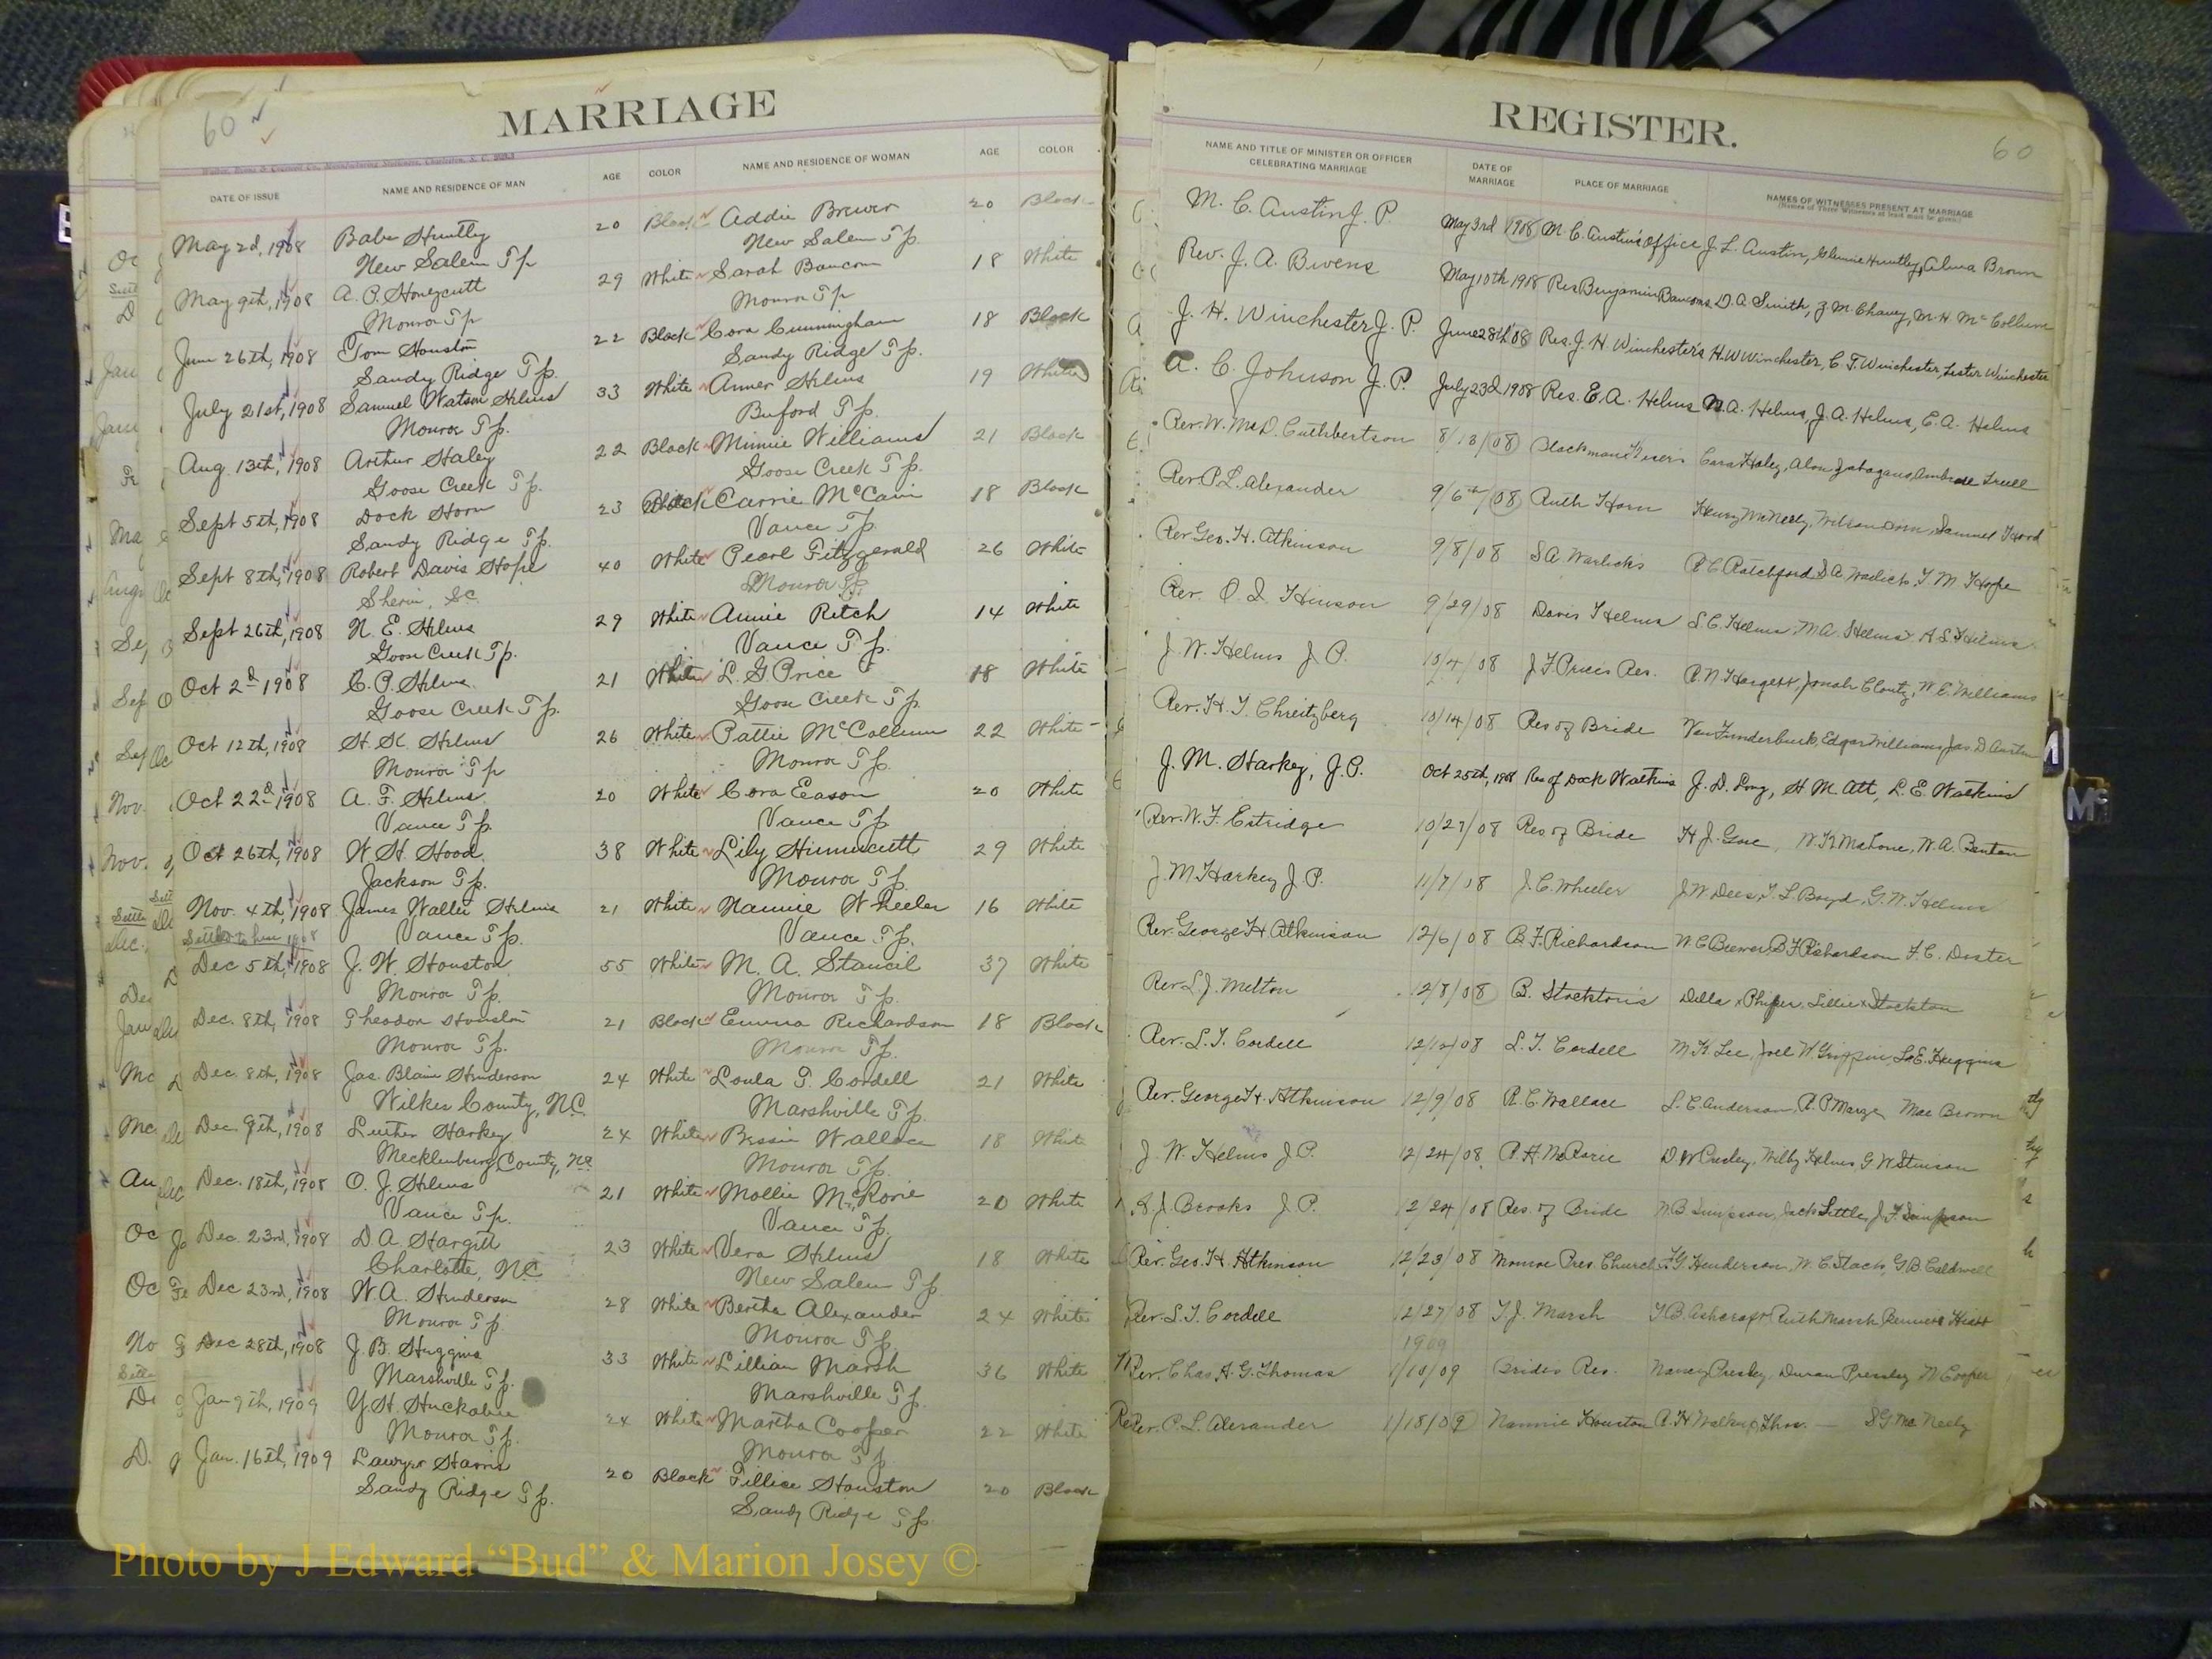 60
MARRIAGE
DATE OF ISSUE NAME AND RESIDENCE OF MAN AGE COLOR NAME AND RESIDENCE OF WOMAN AGE COLOR
May 2d, 1908 Babe Huntley 20 Black Addie Brewer 20 Black
New Salem Tp New Salem Tp.
May 9th, 1908 A. P. Honeycutt 29 White Sarah Baucom 18 White
Monroe Tp Monroe Tp
June 26th, 1908 Tom Houston 22 Black Cora Cunningham 18 Black
Sandy Ridge Tp. Sandy Ridge Tp.
July 21st, 1908 Samuel Watson Helms 33 White Anner Helms 19 White
Monroe Tp. Buford Tp.
Aug. 13th, 1908 Arthur Haley 22 Black Minnie Williams 21 Black
Goose Creek Tp. Goose Creek Tp.
Sept 5th, 1908 Dock Horn 23 Black Carrie McCain 18 Black
Sandy Ridge Tp. Vance Tp.
Sept 8th, 1908 Robert Davis Hope 40 White Pearl Fitzgerald 26 White
S.C. Monroe Tp.
Sept 26th, 1908 N. E. Helms 29 White Annie Retch 14 White
Goose Creek Tp. Vance Tp.
Oct 2d 1908 C. P. Helms 21 White L. G Price 18 White
Goose Creek Tp. Goose Creek Tp.
Oct 12th, 1908 H. K. Helms 26 White Pattie McCollum 22 White
Monroe Tp Monroe Tp.
Oct 22d 1908 A. F. Helms 20 White Cora Eason 20 White
Vance Tp. Vance Tp
Oct 26th, 1908 W. H. Hood 38 White Lily Hinnucutt 29 White
Jackson Tp. Monroe Tp.
Nov. 4th, 1908 James Walter Helms 21 White Nannie Wheeler 16 White
Vance Tp. Vance Tp.
Dec 5th, 1908 J. W. Houston 55 White M. A. Stancil 37 White
Monroe Tp. Monroe Tp.
Dec. 8th, 1908 Theodore Houston 21 Black Emma Richardson 18 Black
Monroe Tp. Monroe Tp.
Dec. 8th, 1908 Jas. Blain Henderson 24 White Loula T. Cordell 21 White
Wilkes County, N.C. Marshville Tp.
Dec. 9th, 1908 Luther Harkey 24 White Bessie Wallace 18 White
Mecklenburg County, N.C. Monroe Tp.
Dec. 18th, 1908 O. J. Helms 21 White Mollie McRorie 20 White
Vance Tp. Vance Tp.
Dec. 23rd, 1908 D A. Hargett 23 White Vera Helms 18 White
Charlotte, N.C. New Salem Tp.
Dec 23rd, 1908 W. A. Henderson 28 White Bertha Alexander 24 White
Monroe Tp. Monroe Tp.
Dec 28th, 1908 J. B. Huggins 33 White Lillian Marsh 36 White
Marshville Tp. Marshville Tp.
Jan 9th, 1909 Y. H. Huckabee 24 White Martha Cooper 22 White
Monroe Tp. Monroe Tp.
Jan. 16th, 1909 Lawyer Harris 20 Black Tillice Houston 20 Black
Sandy Ridge Tp. Sandy Ridge Tp.
REGISTER.
60
NAME AND TITLE OF MINISTER OR OFFICER CELEBRATING MARRIAGE DATE OF MARRIAGE PLACE OF MARRIAGE NAMES OF WITNESSES PRESENT AT MARRIAGE
(Names of Three Witnesses at least must be given)
M. C. Austin J. P. May 3rd 1908 M. C. Austin's office J. L. Austin, Glennie Huntley, Alma Brown
Rev. J. A. Bivens May 10th 1908 Res Benjamin Baucoms D. A Smith, Z. M. Chaney, M. H. McCollum
J. H. Winchester J. P. June 28th '08 Res. J. H. Winchester's H. W Winchester, C. T. Winchester, Lester Winchester
A. C. Johnson J. P. July 23d 1908 Res. E. A. Helms M. A. Helms, J. A. Helms, E. A. Helms
Rev. W. McD. Cuthbertson 8/13/08
Rev. P. L. Alexander 9/6th/08 Ruth Horn Henry McNeely, Wilson
Rev. Geo. H. Atkinson 9/8/08 S A. Warlicks R C Ratchford, S A. Warlick, T. M. Hope
Rev. O. I. Hinson 9/29/08 Davis Helms S. C. Helms, M. A. Helms, A. S. Helms
J. W. Helms J. P. 10/4/08 J. F. Prices Res. R. N. Hargett, Jonah Clontz, W. E. Williams
Rev. H. F. Chreitzberg 10/14/08 Res of Bride Van Funderburk, Edgar Williams, Jas. D. Austin
J. M. Harkey, J. P. Oct 25th, 1908 Res of Dock Watkins J. D. Long, H. M. Att, L. E. Watkins
Rev. W. F. Estridge 10/27/08 Res of Bride H J. Gore, W. K Mahone, W. A. Benton
J. M Harkey J. P. 11/7/08 J. C. Wheeler J. W Dees, T. L. Boyd, G. W. Helms
Rev. George H. Atkinson 12/6/08 B. F. Richardson W. C Brewer, B F Richardson F. C. Doster
Rev L. J. Melton 12/8/08 B. Stockton's Della x Phifer, Lillie x Stockton
Rev. L. T. Cordell L. T. Cordell M. K. Lee, Joel W. Griffin, L. E. Huggins
Rev. George H. Atkinson 12/9/08 R. C. Wallace L. C. Anderson, Mae Brown
J. W. Helms J P. 12/24/08 R. H. McRorie Wilby Helms, G W Stinson
A. J. Brooks J P. 12/24/08 Res. of Bride W. B Simpson, Jack Little, J. F. Simpson
Rev. Geo. H. Atkinson 12/23/08 Monroe Pres. Church F. G. Henderson, W. C. Stack, G. B. Caldwell
Rev. L. T. Cordell 12/27/08 T. J. Marsh T. B. Ashcraft, Ruth Marsh
1909
Rev. Chas A. G. Thomas 1/10/09 Brides Res. Nancy Presley, Duran Pressley
Rev. P. L. Alexander 1/18/09 Nannie Houston S G McNeely
Photo by J Edward “Bud” & Marion Josey ©